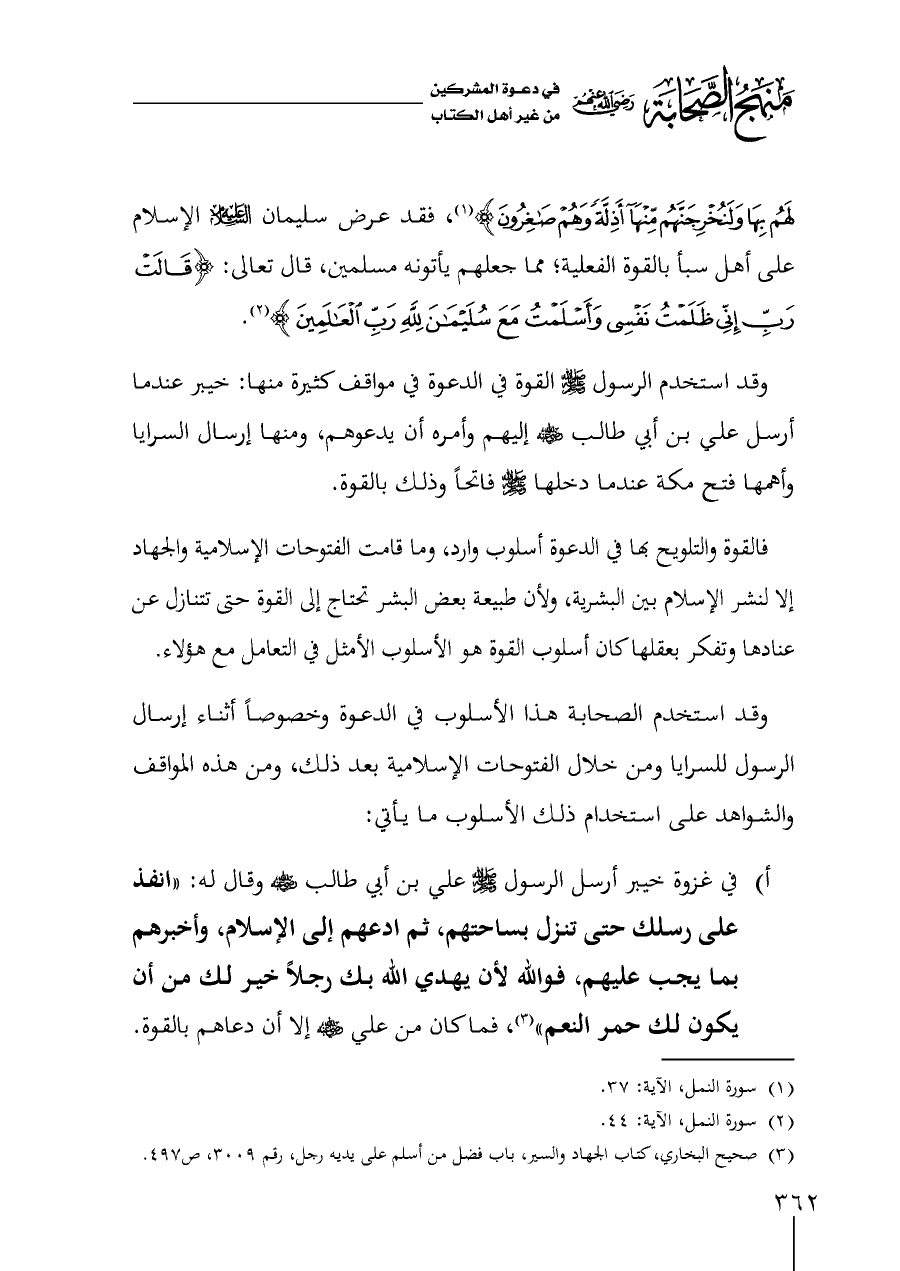 منهج الصحابة رضي الله عنهم
في دعوة المشركين
من غير أهل الكتاب
لَهُم بِهَا وَلَنُخْرِجَنَّهُم مِّنْهَآ أَذِلَّةً وَهُمْ صَٰغِرُونَ﴾(١)، فقد عرض سليمان عليه السلام الإسلام
على أهل سبأ بالقوة الفعلية؛ مما جعلهم يأتونه مسلمين، قال تعالى: ﴿قَالَتْ
رَبِّ إِنِّي ظَلَمْتُ نَفْسِي وَأَسْلَمْتُ مَعَ سُلَيْمَٰنَ لِلَّهِ رَبِّ ٱلْعَٰلَمِينَ﴾(٢).
وقد استخدم الرسول ﷺ القوة في الدعوة في مواقف كثيرة منها: خيبر عندما
أرسل علي بن أبي طالب رضي الله عنه إليهم وأمره أن يدعوهم، ومنها إرسال السرايا
وأهمها فتح مكة عندما دخلها ﷺ فاتحاً وذلك بالقوة.
فالقوة والتلويح بها في الدعوة أسلوب وارد، وما قامت الفتوحات الإسلامية والجهاد
إلا لنشر الإسلام بين البشرية، ولأن طبيعة بعض البشر تحتاج إلى القوة حتى تتنازل عن
عنادها وتفكر بعقلها كان أسلوب القوة هو الأسلوب الأمثل في التعامل مع هؤلاء.
وقد استخدم الصحابة هذا الأسلوب في الدعوة وخصوصاً أثناء إرسال
الرسول للسرايا ومن خلال الفتوحات الإسلامية بعد ذلك، ومن هذه المواقف
والشواهد على استخدام ذلك الأسلوب ما يأتي:
أ) في غزوة خيبر أرسل الرسول ﷺ علي بن أبي طالب رضي الله عنه وقال له: «انفذ
على رسلك حتى تنزل بساحتهم، ثم ادعهم إلى الإسلام، وأخبرهم
بما يجب عليهم، فوالله لأن يهدي الله بك رجلاً خير لك من أن
يكون لك حمر النعم»(٣)، فما كان من علي رضي الله عنه إلا أن دعاهم بالقوة.
(١) سورة النمل، الآية: ٣٧.
(٢) سورة النمل، الآية: ٤٤.
(٣) صحيح البخاري، كتاب الجهاد والسير، باب فضل من أسلم على يديه رجل، رقم ٣٠٠٩، ص٤٩٧.
٣٦٢